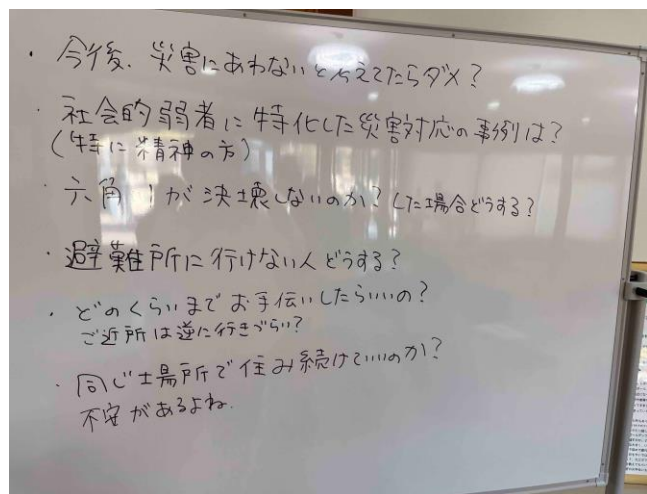 ・今後、災害にあわないと考えてたらダメ?
・社会的弱者に特化した災害対応の事例は?
(特に精神の方)
・六角川が決壊しないのか?した場合どうする?
・避難所に行けない人どうする?
・どのくらいまでお手伝いしたらいいの?
ご近所は逆に行きづらい?
・同じ場所で住み続けていいのか?
不安があるよね.